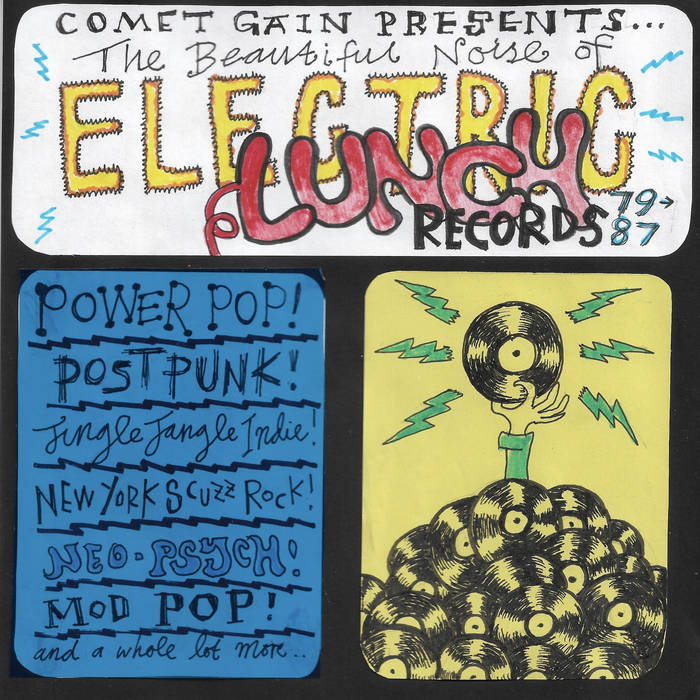 COMET GAIN PRESENTS...
The Beautiful Noise of
ELECTRIC
LUNCH
RECORDS 79→
87
POWER POP!
POST PUNK!
Jingle Jangle Indie!
NEW YORK SCUZZ ROCK!
NEO-PSYCH!
MOD POP!
and a whole lot more...